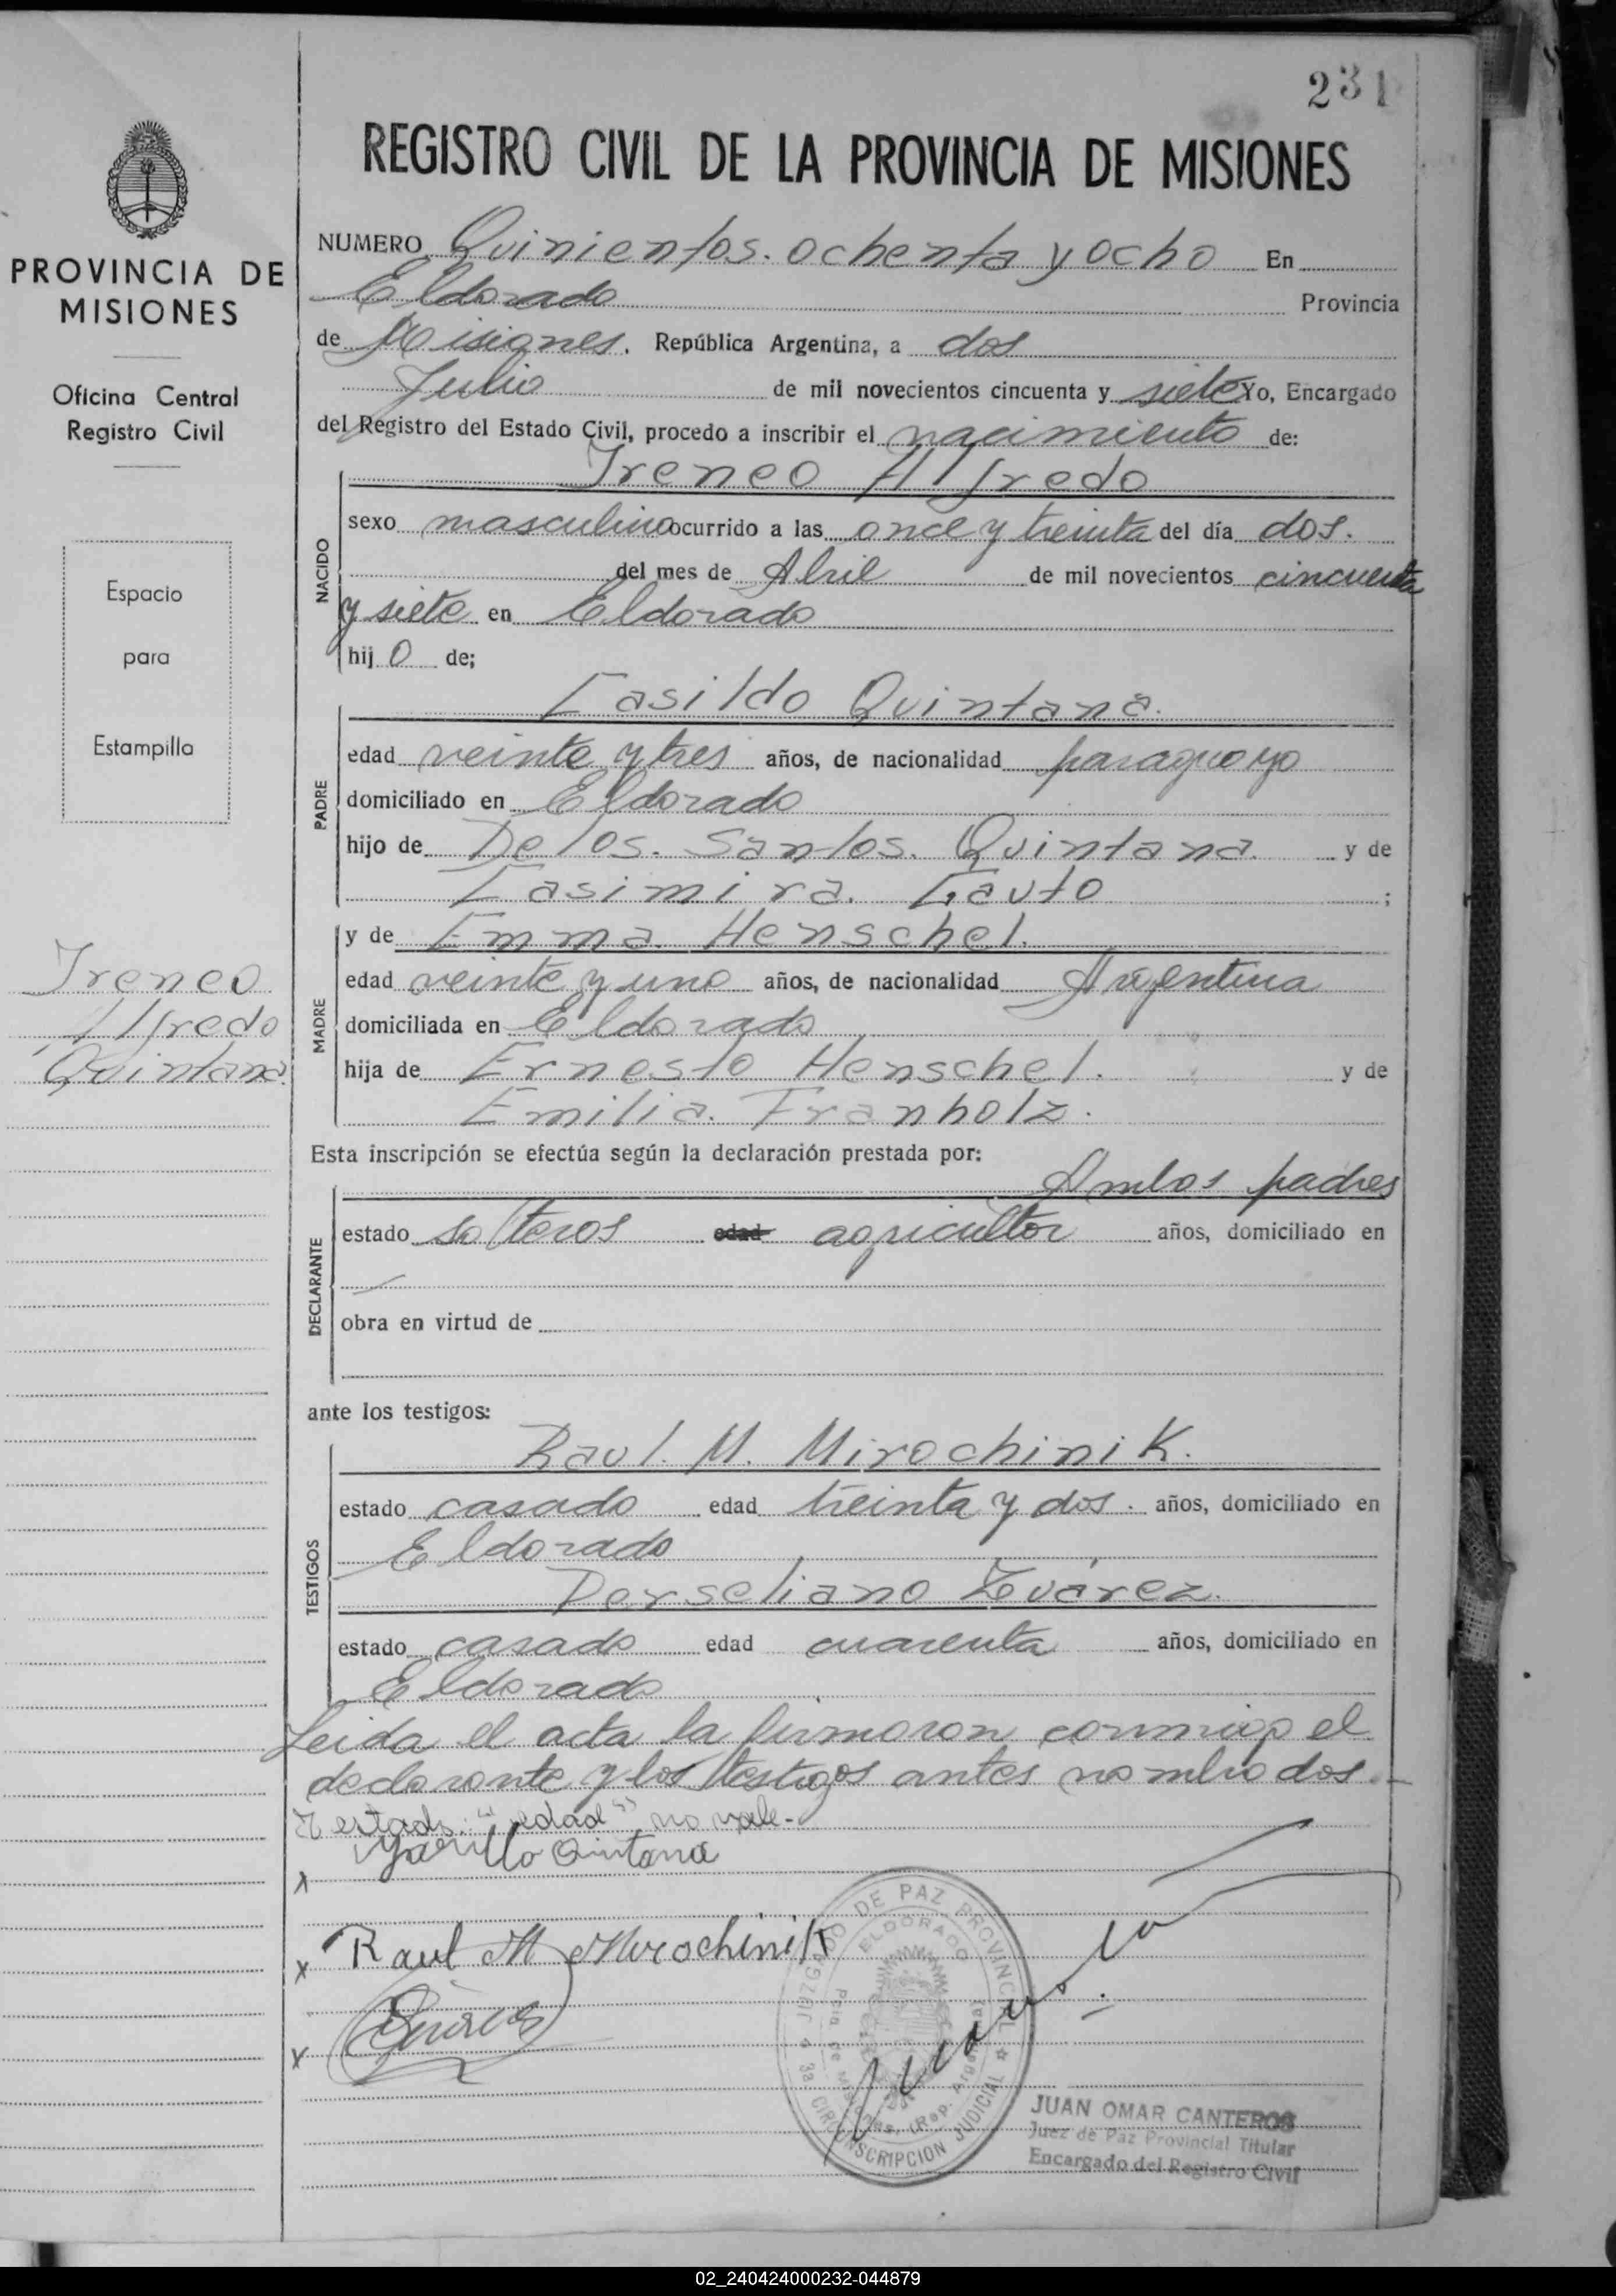 231
REGISTRO CIVIL DE LA PROVINCIA DE MISIONES
PROVINCIA DE
MISIONES
Oficina Central
Registro Civil
Espacio
para
Estampilla
Ireneo
Alfredo
Quintana
NUMERO Quinientos. ochenta y ocho En
Eldorado Provincia
de Misiones. República Argentina, a dos
Julio de mil novecientos cincuenta y siete Yo, Encargado
del Registro del Estado Civil, procedo a inscribir el nacimiento de:
NACIDO
Ireneo Alfredo
sexo masculino ocurrido a las once y treinta del día dos.
del mes de Abril de mil novecientos cincuenta
y siete en Eldorado
hij o de;
PADRE
Casildo Quintana.
edad veinte y tres años, de nacionalidad paraguayo
domiciliado en Eldorado
hijo de De los. Santos. Quintana. y de
Casimira. Gauto ;
MADRE
y de Emma Henschel.
edad veinte y uno años, de nacionalidad Argentina
domiciliada en Eldorado
hija de Ernesto Henschel. y de
Emilia. Franholz.
Esta inscripción se efectúa según la declaración prestada por:
DECLARANTE
Ambos padres
estado solteros edad agricultor años, domiciliado en
obra en virtud de
ante los testigos:
TESTIGOS
Raul. M. Mirochinik.
estado casado edad treinta y dos. años, domiciliado en
Eldorado
Derseliano Zuárez.
estado casado edad cuarenta años, domiciliado en
Eldorado
Leida el acta la firmaron conmigo el
declarante y los testigos antes nombrados.-
Testado: "edad" no vale.-
Quintana
x
x Raul M Mirochinik
x
JUZGADO DE PAZ PROVINCIAL
ELDORADO
Pcia. de Misiones, (Rep. Argentina)
3a. CIRCUNSCRIPCION JUDICIAL
JUAN OMAR CANTEROS
Juez de Paz Provincial Titular
Encargado del Registro Civil
02_240424000232-044879